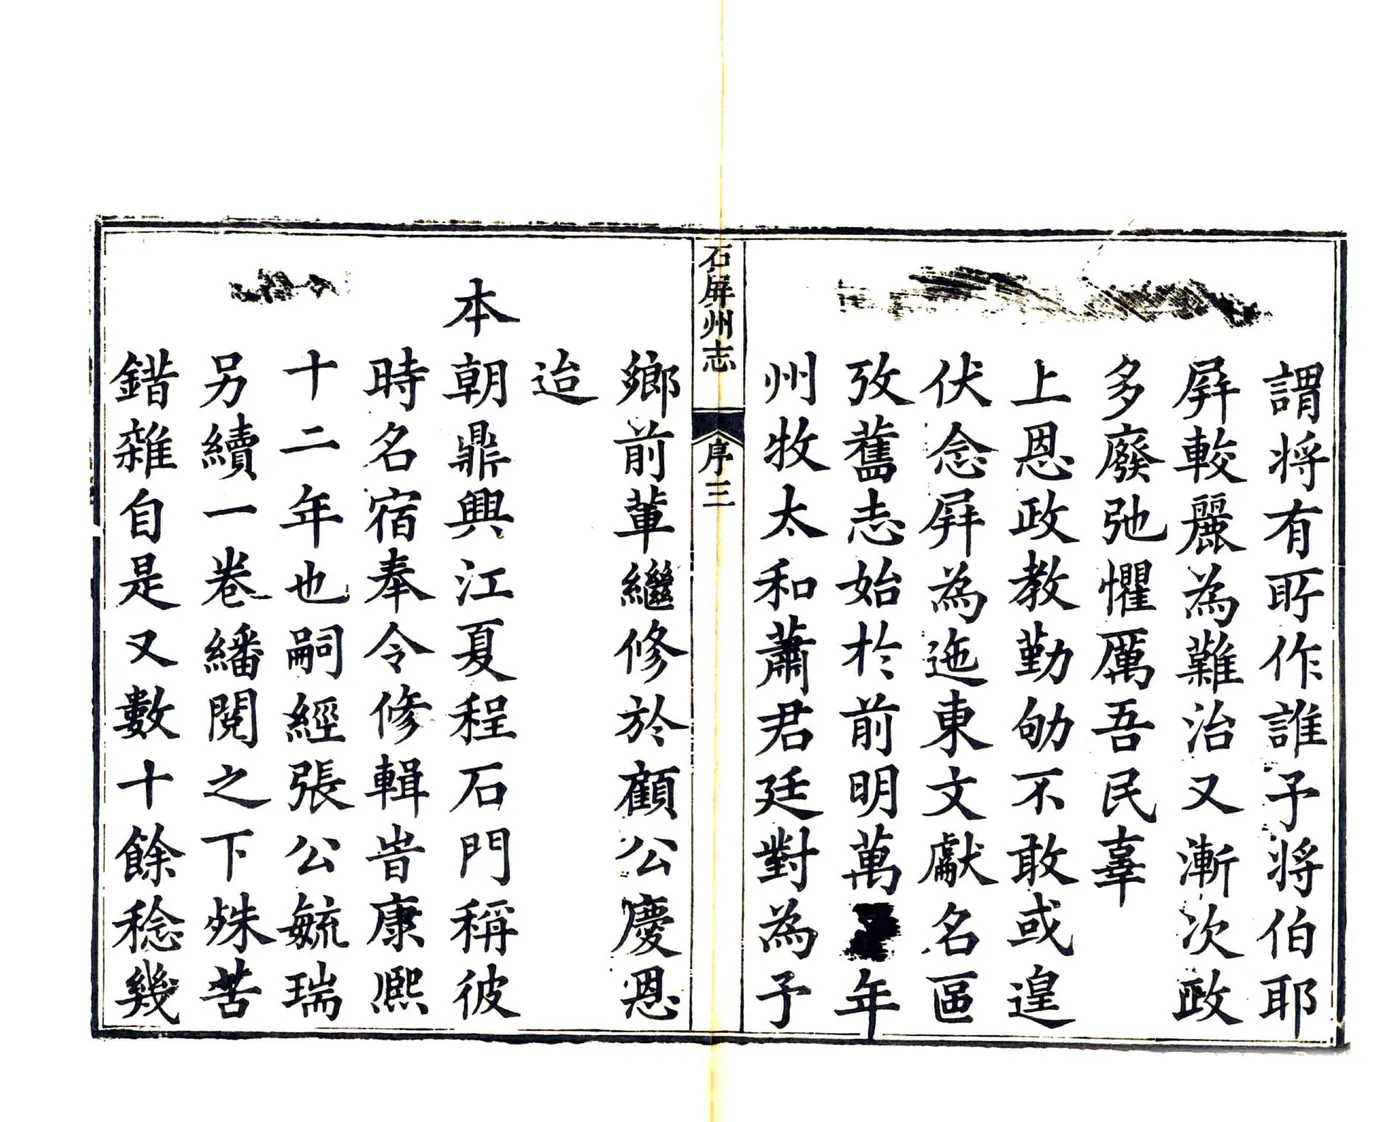 謂將有所作誰予將伯耶
屏較麗為難治又漸次政
多廢弛懼厲吾民辜
上恩政教勤劬不敢或遑
伏念屏為迤東文獻名區
攷舊志始於前明萬年
州牧太和蕭君廷對為予
石屏州志
序三
鄉前軰繼修於顧公慶恩
迨
本朝鼎興江夏程石門稱彼
時名宿奉令修輯旹康熙
十二年也嗣經張公毓瑞
另續一卷繙閱之下殊苦
錯雜自是又數十餘稔幾